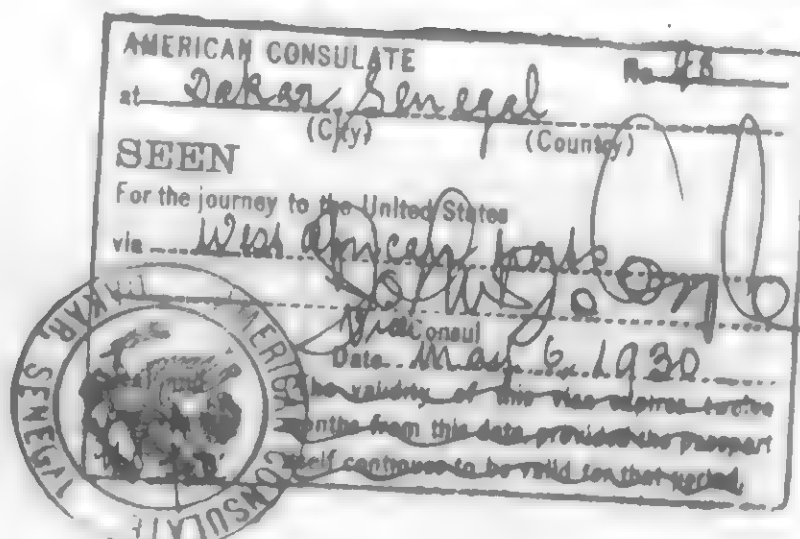 AMERICAN CONSULATE No.
at Dakar, Senegal
(City) (Country)
SEEN
For the journey to the United States
via West African ports
Vice Consul
Date May 6, 1930
The validity of this visa expires twelve
months from this date provided the passport
itself continues to be valid for that period.
AMERICAN CONSULATE
DAKAR, SENEGAL